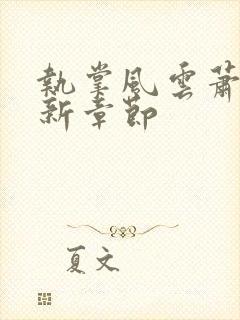 執掌風雲蕭
新章節
夏文